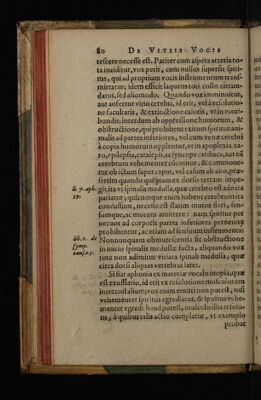 80 DE VITIIS VOCIS
tescere necesse est. Pariter cum aspera arteria to-
ta inciditur, vox perit, cum nullus supersit spiri-
tus, qui ad proprium vocis instrumentum trans-
mittatur; idem efficit laqueus toti collo circun-
datus, sed aliomodo. Quando vox imminuitur,
aut aufertur vitio cerebri, id erit, vel à resolutio-
ne facultatis, & extinctione caloris, vt in mori-
bundis; interdum ab oppressione humorum, &
obstructione, qui prohibent exitum spiritus ani-
malis ad partes inferiores, vel cum venæ cerebri
à copia humorum opplentur, vt in apoplexia, ca-
ro, epilepsia, catalepsi, ac syncope cardiaca, aut cũ
cerebrum vehementer cõcutitur, & commoue-
tur ob ictum super caput, vel casum ab alto, præ-
sertim quando quispiam ex dorso tertam impe-
lib. 7. aph.
git, ita vt spinalis medulla, quæ cerebro est adnata
patiatur; quicunque enim habent cerebrum ita
concussum, necesse est statim mutos fieri, sen-
sumque, ac motum amittere: nam spiritus per
neruos ad corporis partes inferiores permeare
prohibentur, ac etiam ad sensuum instrumenta:
lib. 1. de
Nonnunquam obmutescentia fit obstructione
symp.
in initio spinalis medullæ facta, aliquando vox
caus. c. 5.
tota non adimitur vitiata spinali medulla, quæ
circa dorsi aliquas vertebras latet.
Si fiat aphonia ex materiæ vocalis inopia, quæ
est exufflatio, id erit ex resolutione musculorum
intercostalium; vox enim emitti non potest, nisi
vehementer spiritus egrediatur, & spiritus vehe-
menter egredi haud potest, musculis illis resolu-
tis, à quibus talis actio completur, vt exemplo
probat